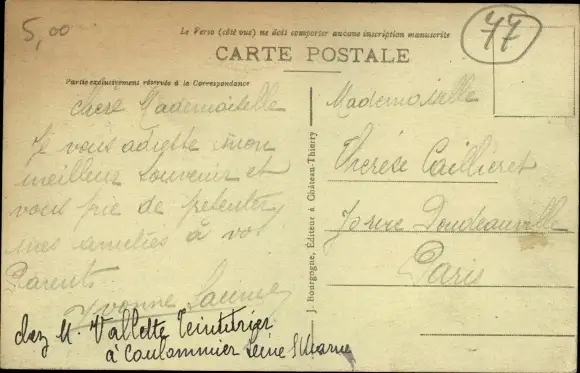 5,00
Le Verso (côté vue) ne doit comporter aucune inscription manuscrite
77
CARTE POSTALE
Partie exclusivement réservée à la Correspondance
Chère Mademoiselle
Je vous adresse mon
meilleur souvenir et
vous prie de présenter
mes amitiés à vos
Parents
Yvonne
chez M. Vallette Teinturier
à Coulommier Seine & Marne
J. Bourgogne, Éditeur à Château-Thierry
Mademoiselle
Thérèse Caillieret
rue Doudeauville
Paris